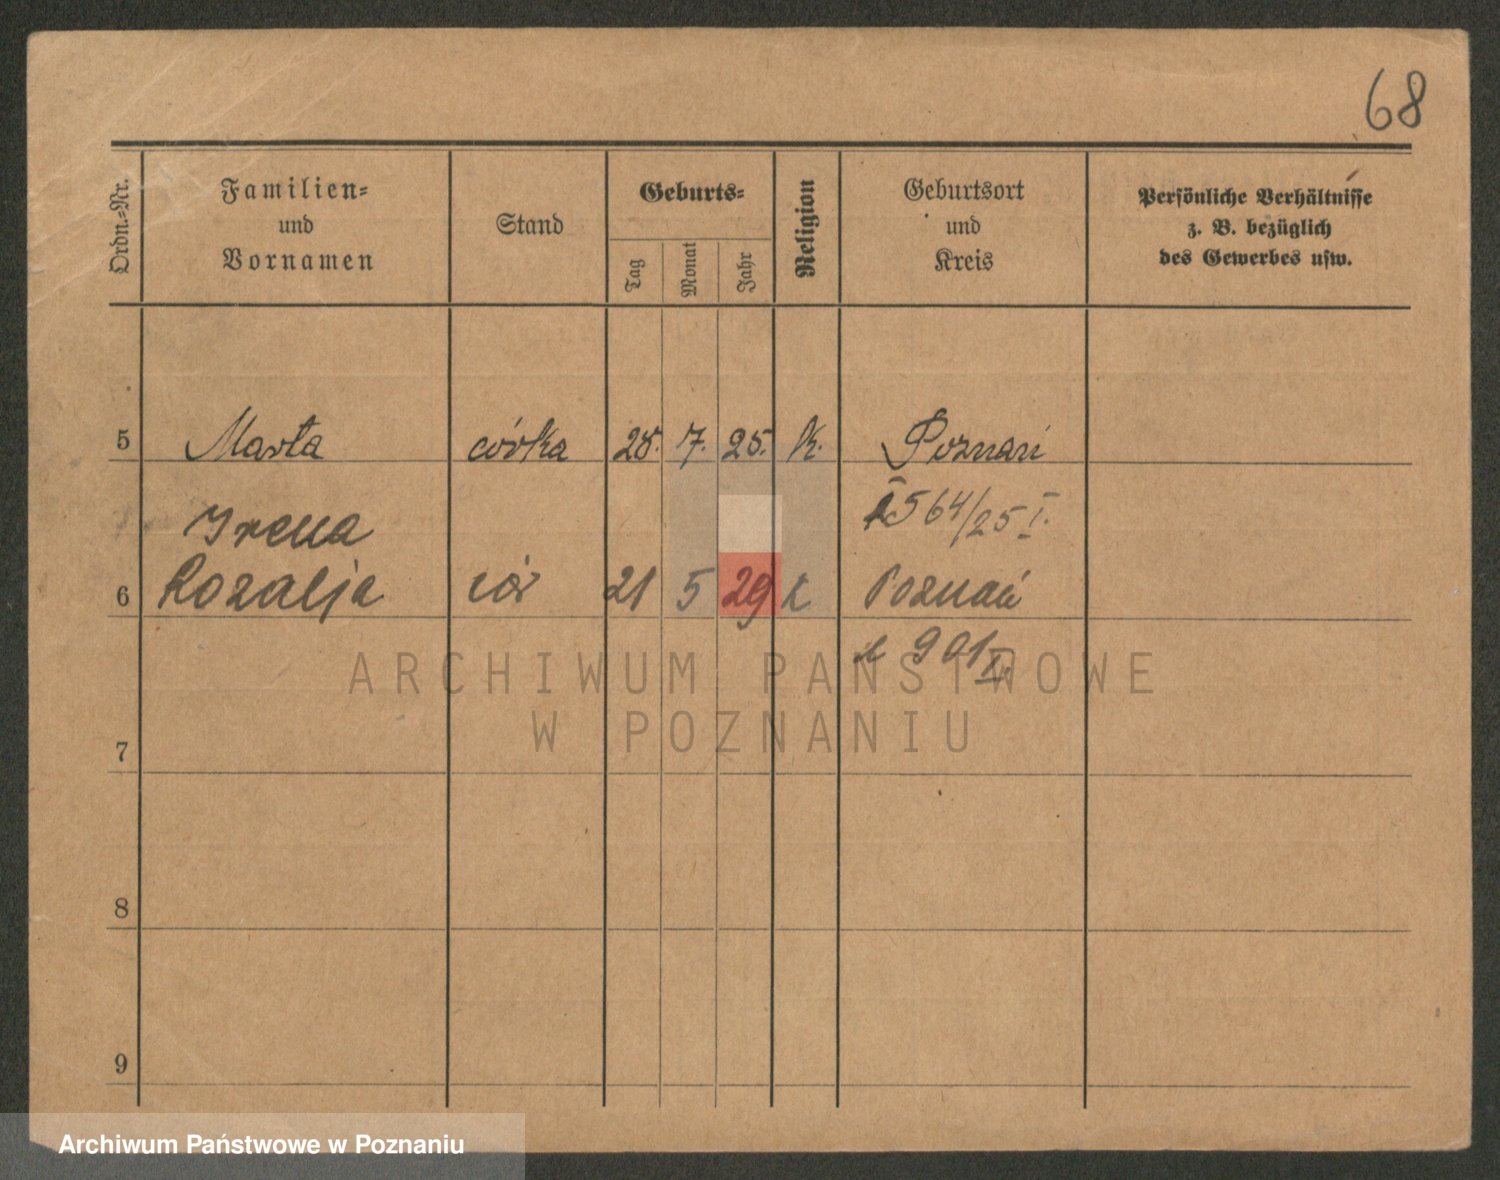 68
Ordn.=Nr.
Familien=
und
Vornamen
Stand
Geburts=
Tag
Monat
Jahr
Religion
Geburtsort
und
Kreis
Persönliche Verhältnisse
z. B. bezüglich
des Gewerbes usw.
5 Marta córka 28. 7. 25. k. Poznań
564/25 I.
Irena
6 Rozalja cór 21 5 29 k Poznań
901 II.
ARCHIWUM PAŃSTWOWE
W POZNANIU
7
8
9
Archiwum Państwowe w Poznaniu